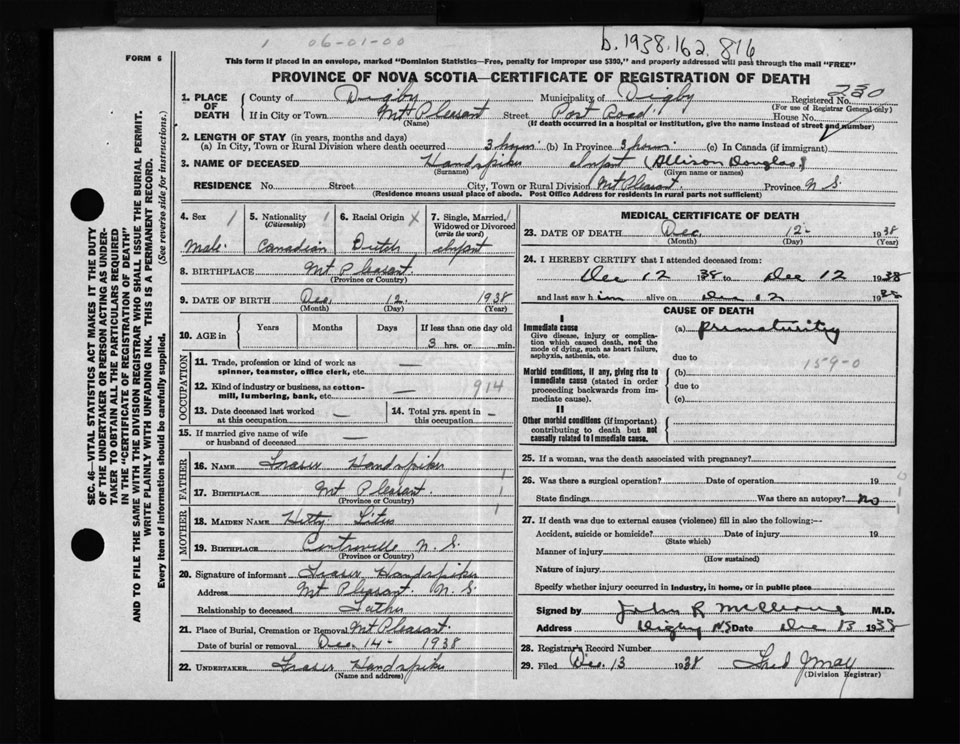 b.1938.162.816
1 06-01-00
FORM 6
This form if placed in an envelope, marked "Dominion Statistics—Free, penalty for improper use $300," and properly addressed will pass through the mail "FREE"
PROVINCE OF NOVA SCOTIA—CERTIFICATE OF REGISTRATION OF DEATH
SEC. 46—VITAL STATISTICS ACT MAKES IT THE DUTY
OF THE UNDERTAKER OR PERSON ACTING AS UNDER-
TAKER TO OBTAIN ALL THE PARTICULARS REQUIRED
IN THE "CERTIFICATE OF REGISTRATION OF DEATH"
AND TO FILE THE SAME WITH THE DIVISION REGISTRAR WHO SHALL ISSUE THE BURIAL PERMIT.
WRITE PLAINLY WITH UNFADING INK. THIS IS A PERMANENT RECORD.
Every item of information should be carefully supplied. (See reverse side for instructions.)
1. PLACE OF DEATH County of Digby Municipality of Digby Registered No. 230
(For use of Registrar General only)
If in City or Town Mt Pleasant Street Post Road House No.
(Name) (If death occurred in a hospital or institution, give the name instead of street and number)
2. LENGTH OF STAY (in years, months and days)
(a) In City, Town or Rural Division where death occurred 3 hours (b) In Province 3 hours (c) In Canada (if immigrant)
3. NAME OF DECEASED Handspiker Infant (Allison Douglas)
(Surname) (Given name or names)
RESIDENCE No. Street City, Town or Rural Division Mt Pleasant. Province N S.
(Residence means usual place of abode. Post Office Address for residents in rural parts not sufficient)
4. Sex 1 Male.
5. Nationality 1 (Citizenship) Canadian
6. Racial Origin X Dutch
7. Single, Married, Widowed or Divorced (write the word) 1 Infant
8. BIRTHPLACE Mt Pleasant.
(Province or Country)
9. DATE OF BIRTH Dec. 12. 1938
(Month) (Day) (Year)
10. AGE in Years Months Days If less than one day old
3 hrs. or min.
OCCUPATION
11. Trade, profession or kind of work as spinner, teamster, office clerk, etc. —
12. Kind of industry or business, as cotton-mill, lumbering, bank, etc. — 914
13. Date deceased last worked at this occupation —
14. Total yrs. spent in this occupation —
15. If married give name of wife or husband of deceased —
FATHER
16. NAME Fraser Handspiker
17. BIRTHPLACE Mt Pleasant. 1
(Province or Country)
MOTHER
18. MAIDEN NAME Hetty Titus
19. BIRTHPLACE Centreville N. S.
(Province or Country)
20. Signature of informant Fraser Handspiker
Address Mt Pleasant. N. S.
Relationship to deceased Father
21. Place of Burial, Cremation or Removal Mt Pleasant.
Date of burial or removal Dec. 14- 1938
22. UNDERTAKER Fraser Handspiker
(Name and address)
MEDICAL CERTIFICATE OF DEATH
23. DATE OF DEATH Dec. 12- 1938
(Month) (Day) (Year)
24. I HEREBY CERTIFY that I attended deceased from:
Dec 12 1938 to Dec 12 1938
and last saw him alive on Dec 12 1938
CAUSE OF DEATH
I
Immediate cause
Give disease, injury or complication which caused death, not the mode of dying, such as heart failure, asphyxia, asthenia, etc.
(a) Prematurity
due to
Morbid conditions, if any, giving rise to immediate cause (stated in order proceeding backwards from immediate cause).
(b) 159-0
due to
(c)
II
Other morbid conditions (if important) contributing to death but not causally related to immediate cause.
25. If a woman, was the death associated with pregnancy?
26. Was there a surgical operation? Date of operation 19
State findings Was there an autopsy? No
27. If death was due to external causes (violence) fill in also the following:—
Accident, suicide or homicide? Date of injury 19
(State which)
Manner of injury
(How sustained)
Nature of injury
Specify whether injury occurred in industry, in home, or in public place
Signed by John R M M.D.
Address Digby NS Date Dec 13 1938
28. Registrar's Record Number
29. Filed Dec. 13 1938 Fred J May
(Division Registrar)